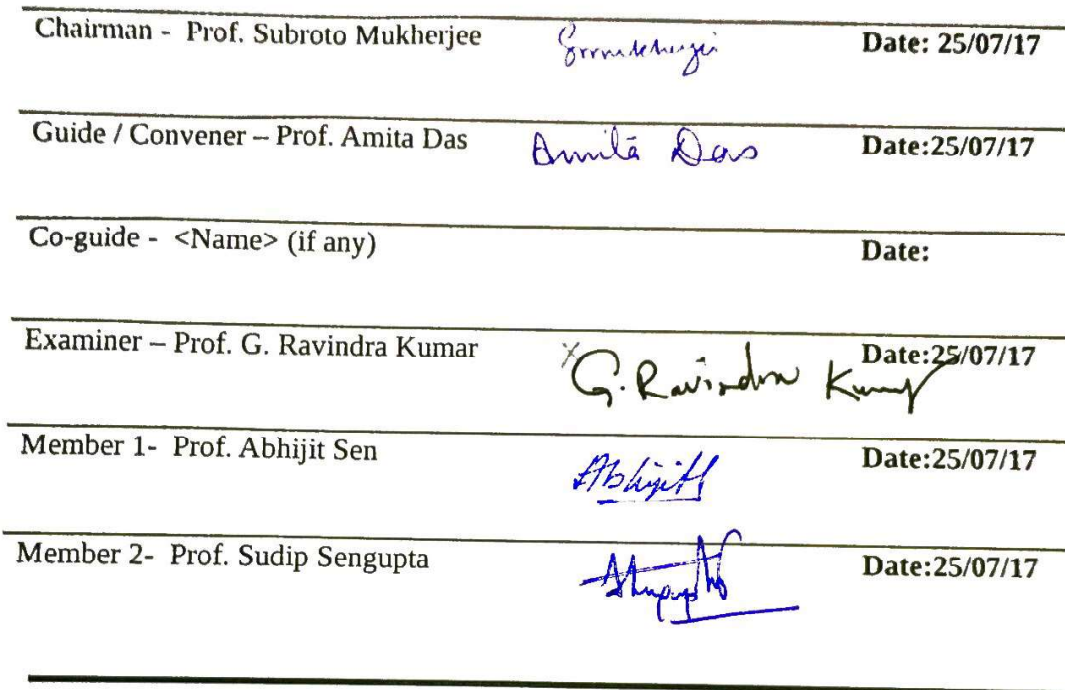 Chairman - Prof. Subroto Mukherjee Date: 25/07/17
Guide / Convener – Prof. Amita Das Amita Das Date:25/07/17
Co-guide - <Name> (if any) Date:
Examiner – Prof. G. Ravindra Kumar X G. Ravindra Kumar Date:25/07/17
Member 1- Prof. Abhijit Sen Abhijit Date:25/07/17
Member 2- Prof. Sudip Sengupta Date:25/07/17